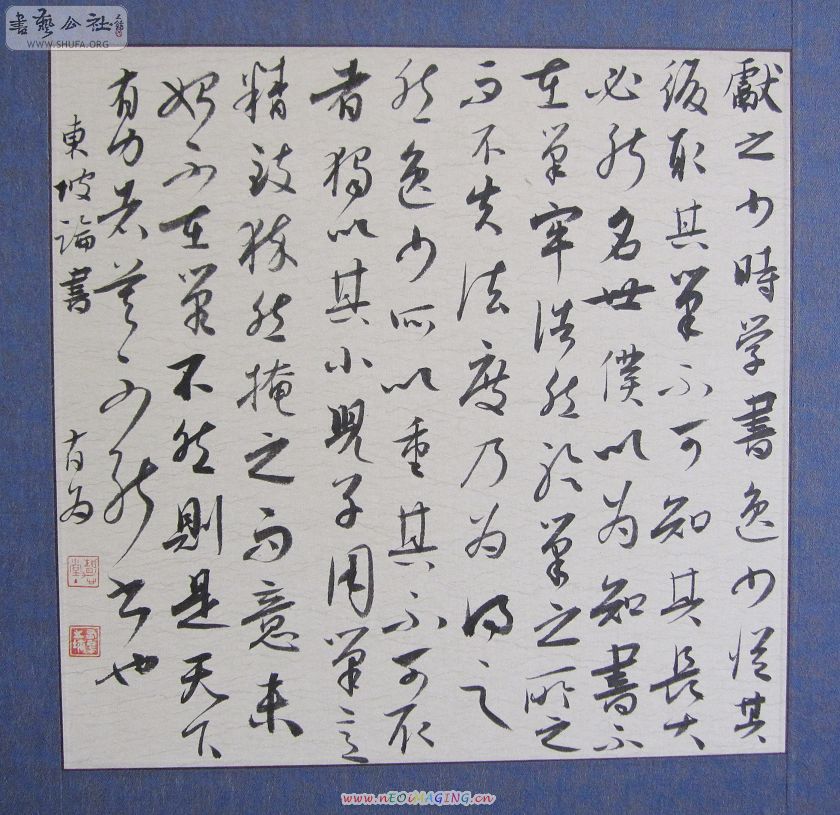 書藝公社
WWW.SHUFA.ORG
獻之少時学書逸少從其
後取其筆不可知其長大
必能名世僕以為知書不
在筆牢浩然於筆之所之
而不失法度乃為得之
然逸少所以重其不可取
者獨以其小兒子用筆意
精致猝然掩之而意未
始不在筆不然則是天下
有力者莫不能书也
東坡論書
www.nEOiMAGiNG.cn